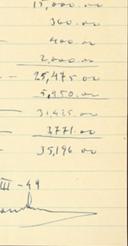 15,000.00
360.00
400.00
2,000.00
25,475.00
5,950.00
31,425.00
3771.00
35,196.00
III - 49